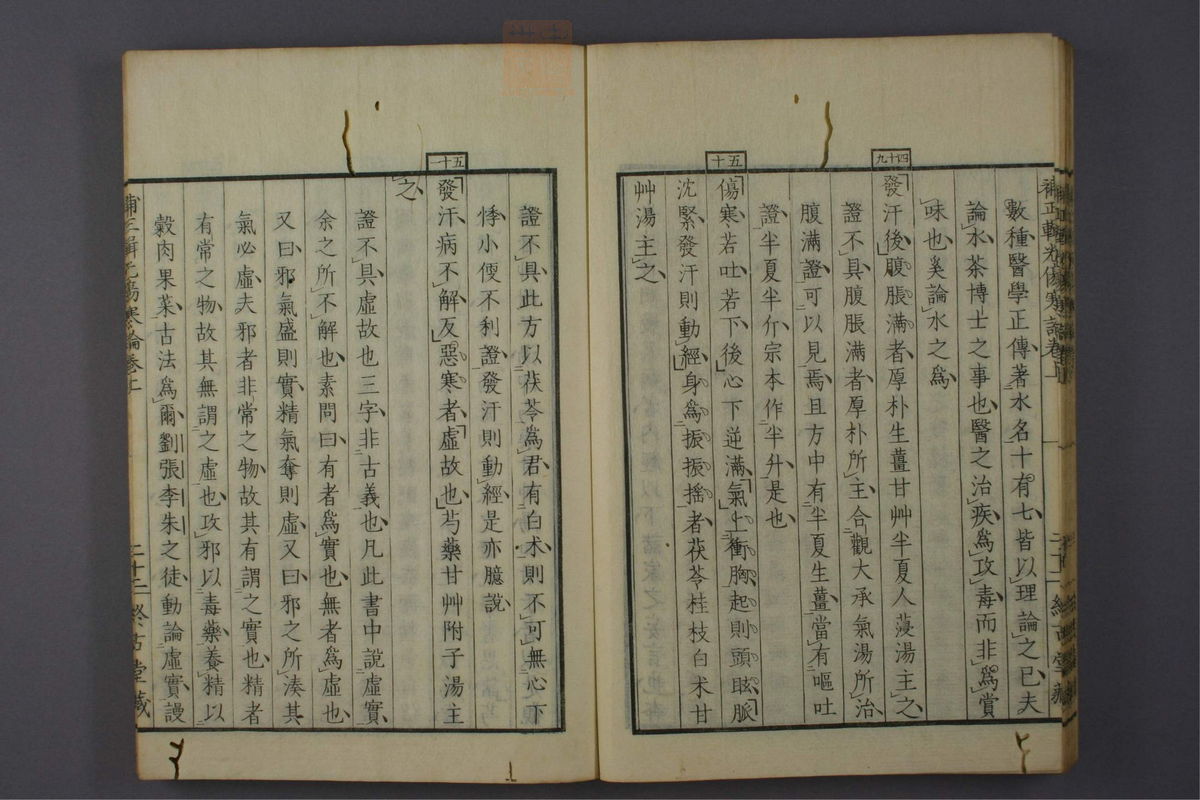 數種醫學正傳著水名十有七皆以理論之已夫
論水茶博士之事也醫之治疾爲攻毒而非爲賞
味也奚論水之爲
四十九
發汗後腹脹滿者厚朴生薑甘艸半夏人葠湯主之
證不具腹脹滿者厚朴所主合觀大承氣湯所治
腹滿證可以見焉且方中有半夏生薑當有嘔吐
證半夏半斤宗本作半升是也
五十
傷寒若吐若下後心下逆滿氣上衝胸起則頭眩脈
沈緊發汗則動經身爲振振搖者茯苓桂枝白朮甘
艸湯主之
證不具此方以茯苓爲君有白朮則不可無心下
悸小便不利證發汗則動經是亦臆說
五十一
發汗病不解反惡寒者虛故也芍藥甘艸附子湯主
之
證不具虛故也三字非古義也凡此書中說虛實
余之所不解也素問曰有者爲實也無者爲虛也
又曰邪氣盛則實精氣奪則虛又曰邪之所湊其
氣必虛夫邪者非常之物故其有謂之實也精者
有常之物故其無謂之虛也攻邪以毒藥養精以
穀肉果菜古法爲爾劉張李朱之徒動論虛實謾